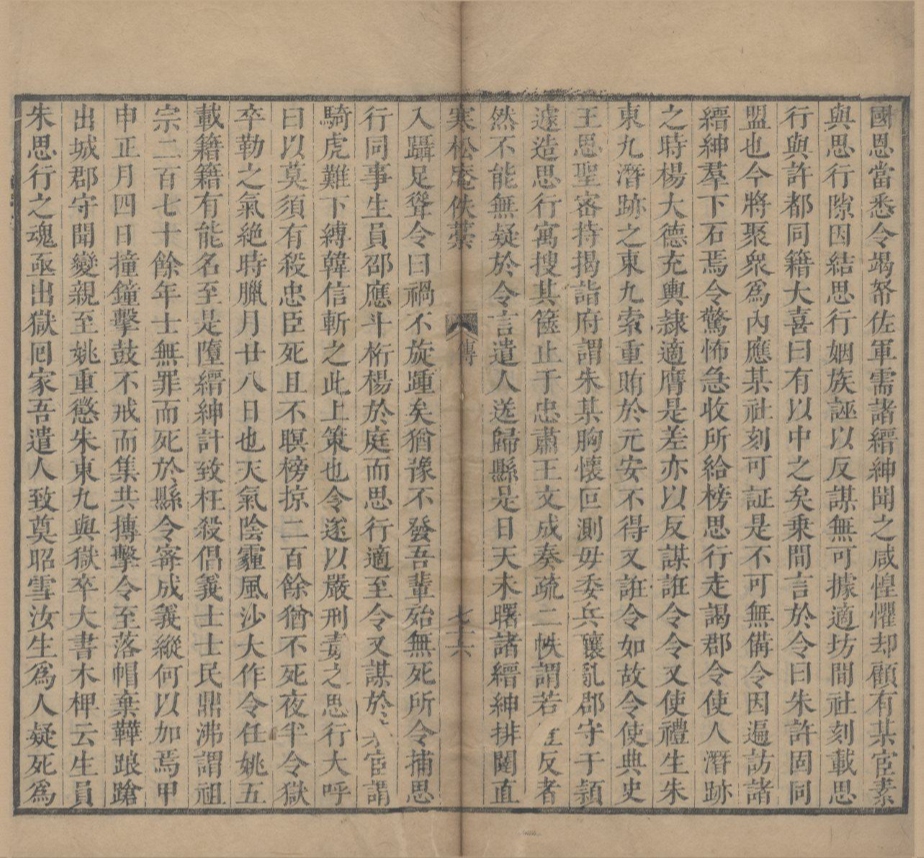 國恩當悉令竭帑佐軍需諸縉紳聞之咸惶懼却顧有某宦素
與思行隙因結思行姻族誣以反謀無可據適坊間社刻載思
行與許都同籍大喜曰有以中之矣乗間言於令曰朱許固同
盟也今將聚衆爲內應某社刻可証是不可無備令因遍訪諸
縉紳羣下石焉令驚怖急收所給榜思行走謁郡令使人潛跡
之時楊大德充輿隷適膺是差亦以反謀誑令令又使禮生朱
東九潛跡之東九索重賄於元安不得又誑令如故令使典史
王思聖密持揭詣府謂朱某胸懷叵測毋委兵釀亂郡守于頴
遽造思行寓搜其篋止于忠肅王文成奏疏二帙謂若 反者
然不能無疑於令言遣人送歸縣是日天未曙諸縉紳排闥直
寒松菴佚藁 傳 七六
入躡足聳令曰禍不旋踵矣猶豫不發吾輩殆無死所令捕思
行同事生員邵應斗桁楊於庭而思行適至令又謀於 宦謂
騎虎難下縛韓信斬之此上策也令遂以嚴刑毒之思行大呼
曰以莫須有殺忠臣死且不瞑榜掠二百餘猶不死夜半令獄
卒勒之氣絶時臘月廿八日也天氣陰霾風沙大作令任姚五
載籍籍有能名至是墮縉紳計致枉殺倡義士士民鼎沸謂祖
宗二百七十餘年士無罪而死於縣令寄成義縱何以加焉甲
申正月四日撞鐘擊鼓不戒而集共搏擊令至落帽棄鞾踉蹌
出城郡守聞變親至姚重懲朱東九與獄卒大書木柙云生員
朱思行之魂亟出獄囘家吾遣人致奠昭雪汝生爲人疑死爲